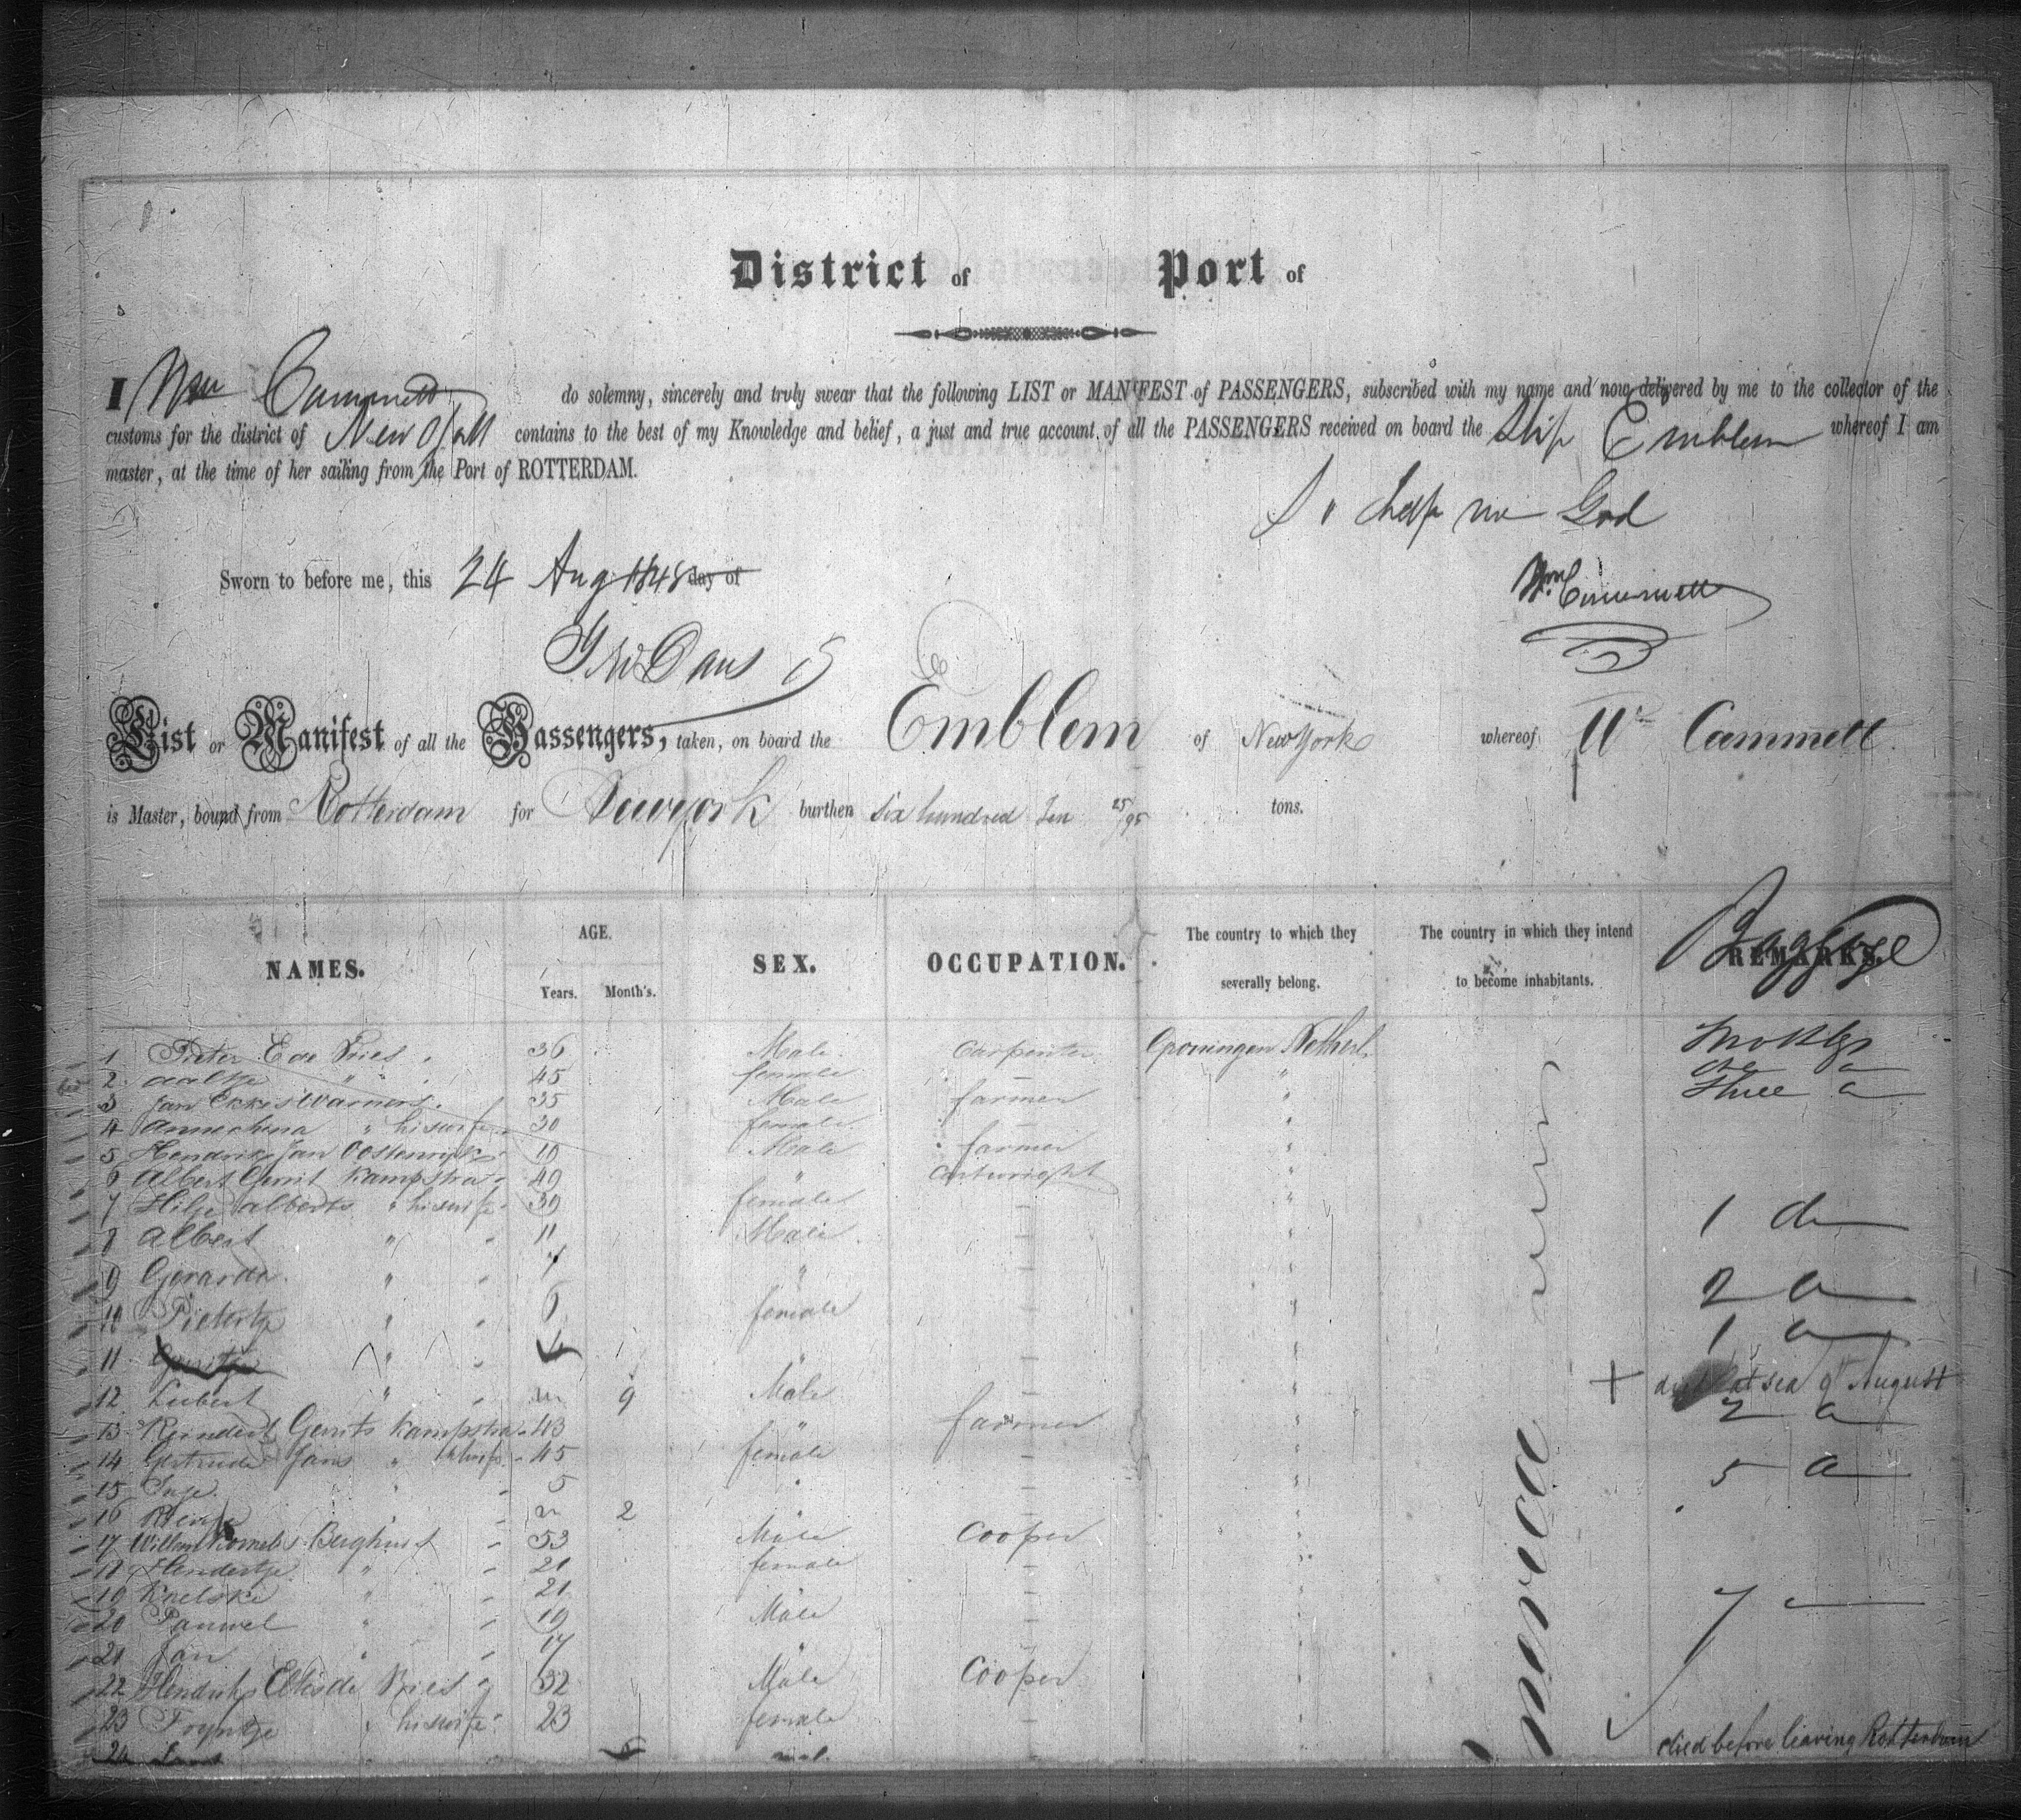 District of Port of
I Wm Cammett do solemny, sincerely and truly swear that the following LIST or MANIFEST of PASSENGERS, subscribed with my name and now delivered by me to the collector of the
customs for the district of New York contains to the best of my Knowledge and belief, a just and true account of all the PASSENGERS received on board the Ship Emblem whereof I am
master, at the time of her sailing from the Port of ROTTERDAM.
So help me God
Sworn to before me, this 24 Aug 1848 day of
Wm Cammett
List or Manifest of all the Passengers, taken, on board the Emblem of New York whereof Wm Cammett
is Master, bound from Rotterdam for Newyork burthen six hundred Ten 25/95 tons.
NAMES. AGE. Years. Month's. SEX. OCCUPATION. The country to which they severally belong. The country in which they intend to become inhabitants. REMARKS. Baggage
1 Pieter Ede Vries 36 Male Carpenter Groningen Netherl.
2 Aaltje " 45 female — "
3 Jan Ekkes Warners 35 Male farmer " three
4 Annechina " his wife 30 female — "
5 Hendrik Jan Oostenrijk 19 Male farmer "
6 Albert Gerrit Kampstra 49 " Cartwright "
7 Hilje Alberts " his wife 39 female — " 1 do
8 Albert " 11 Male — "
9 Gerardo " 7 " — " 2
10 Pietertje " 6 female — " 1
11 " 4 " — "
12 Lubert " 9 Male — " + died at sea 9th August
13 Reindert Gerrits Kampstra 43 " farmer " 2
14 Gertrude Jans " his wife 45 female — " 5
15 5 " — "
16 2 "
17 Willem Berghuis 53 Male Cooper "
18 Hendertje " 21 female — "
19 " 21 "
20 Pauwel " 19 Male — " 7 —
21 Jan " 17 " — "
22 Hendrik Eltes de Vries 32 Male Cooper "
23 Tryntje " his wife 23 female — "
24 died before leaving Rotterdam
America